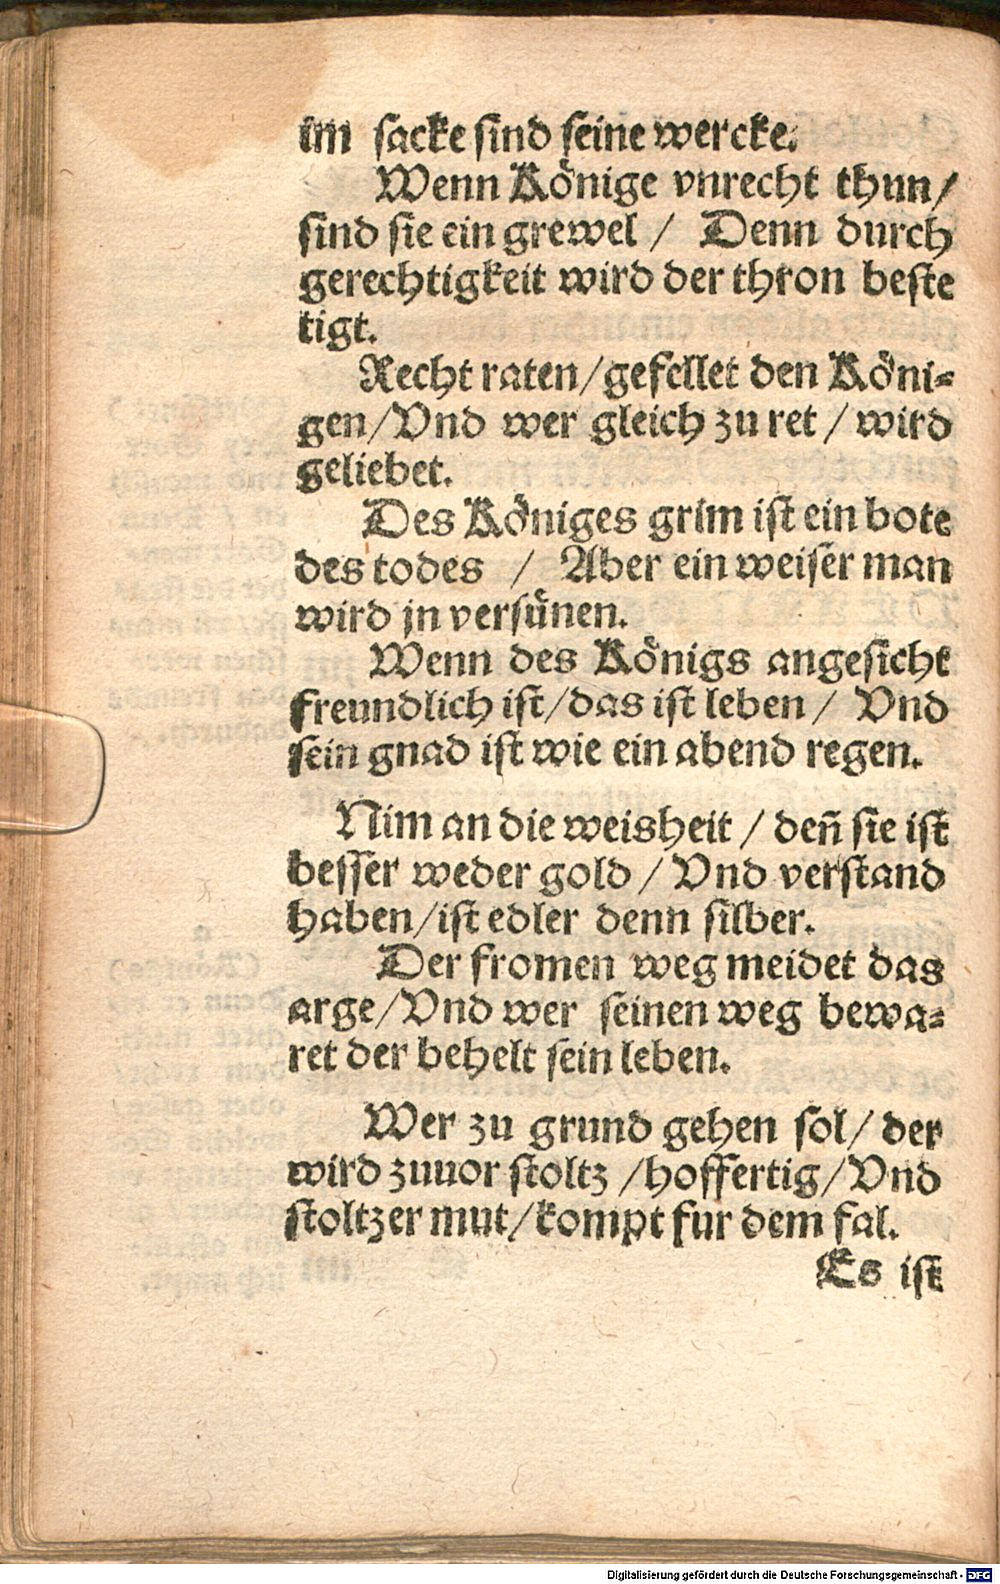 im sacke sind seine wercke.
Wenn Könige vnrecht thun/
sind sie ein grewel / Denn durch
gerechtigkeit wird der thron beste
tigt.
Recht raten/gefellet den Köni-
gen/Vnd wer gleich zu ret / wird
geliebet.
Des Königes grim ist ein bote
des todes / Aber ein weiser man
wird jn versünen.
Wenn des Königs angesicht
freundlich ist/das ist leben / Vnd
sein gnad ist wie ein abend regen.
Nim an die weisheit / deñ sie ist
besser weder gold / Vnd verstand
haben/ist edler denn silber.
Der fromen weg meidet das
arge/Vnd wer seinen weg bewa-
ret der behelt sein leben.
Wer zu grund gehen sol/ der
wird zuuor stoltz /hoffertig/Vnd
stoltzer mut/kompt fur dem fal.
Es ist
Digitalisierung gefördert durch die Deutsche Forschungsgemeinschaft - DFG